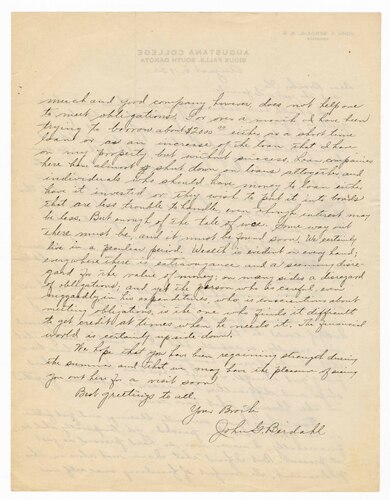 much and good company however does not help one
to meet obligations. For over a month I have been
trying to borrow about $2500.00 either as a short time
loan or as an increase of the loan that I have
on my property but without success. Loan companies
here have almost shut down on loans altogether and
individuals who should have money to loan either
have it invested or they wish to put it into bonds
that are less trouble to handle, even though interest may
be less. But enough of the tale of woe. Some way out
there must be, and it must be found soon. We certainly
live in a peculiar period. Wealth is evident on every hand;
everywhere there is extravagance and a seeming disre-
gard for the value of money; on many sides a disregard
of obligations; and yet the person who is careful, even
niggardly in his expenditures, who is conscientious about
meeting obligations, is the one who finds it difficult
to get credit at times when he needs it. The financial
world is certainly upside down.
We hope that you have been regaining strength during
the summer and that we may have the pleasure of seeing
you out here for a visit soon!
Best greetings to all.
Your Broth.
John G. Berdahl